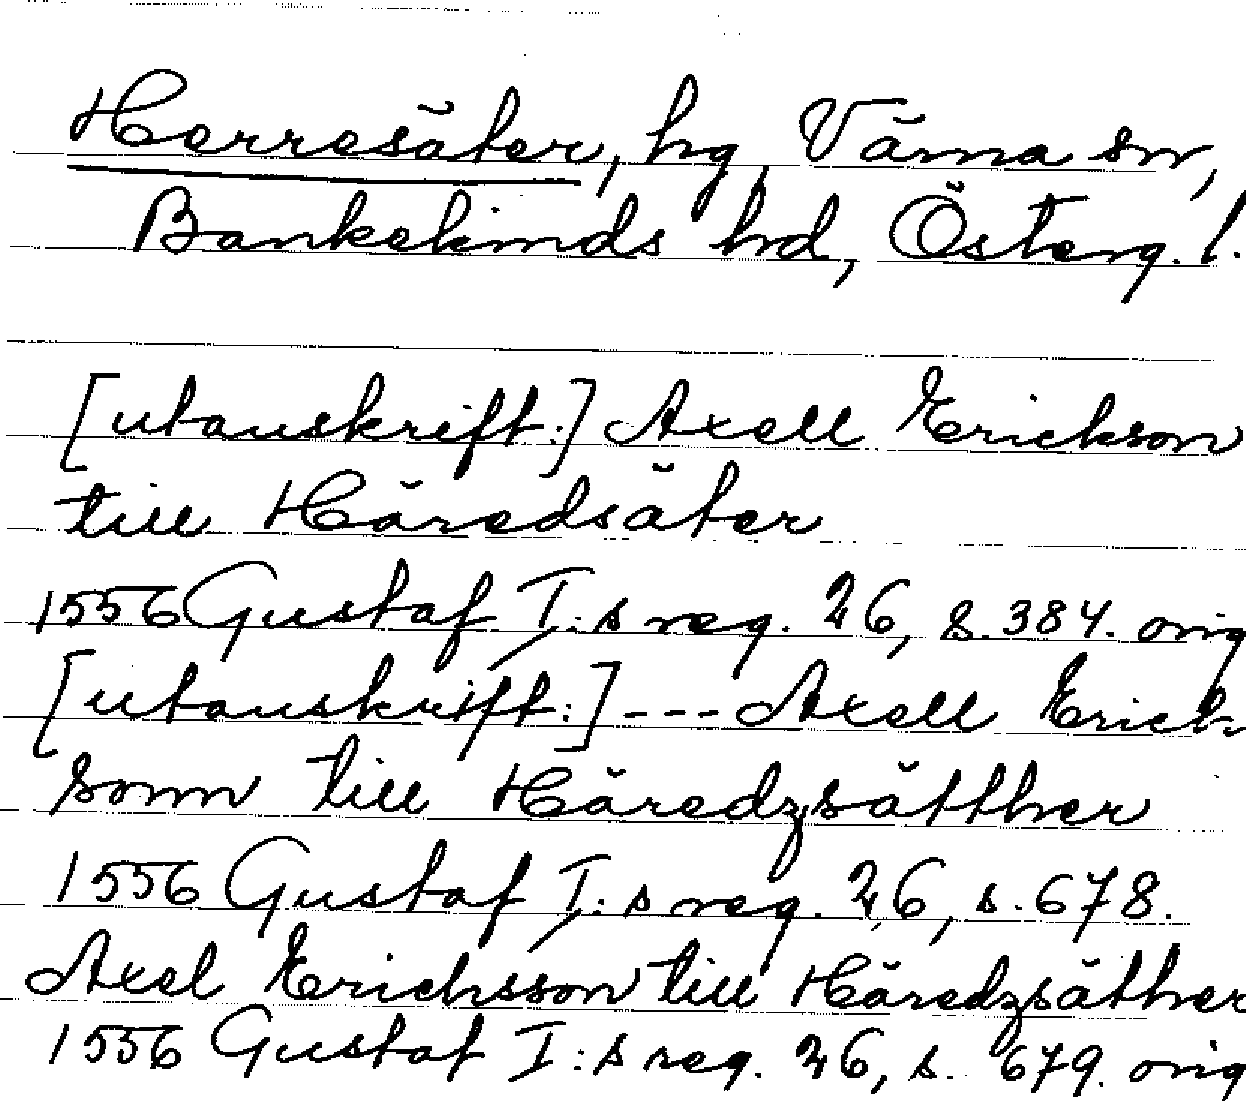 Herresäter, hg, Värna sn,
Bankekinds hd, Österg. l.
[utanskrift:] Axell Erickson
till Häredsäter
1556 Gustaf I:s reg. 26, s. 384. orig
[utanskrift:] --- Axell Erich
sonn till Häredzsätther
1556 Gustaf I:s reg. 26, s. 678.
Axel Erichsson till Häredzsäther
1556 Gustaf I:s reg. 26, s. 679. orig